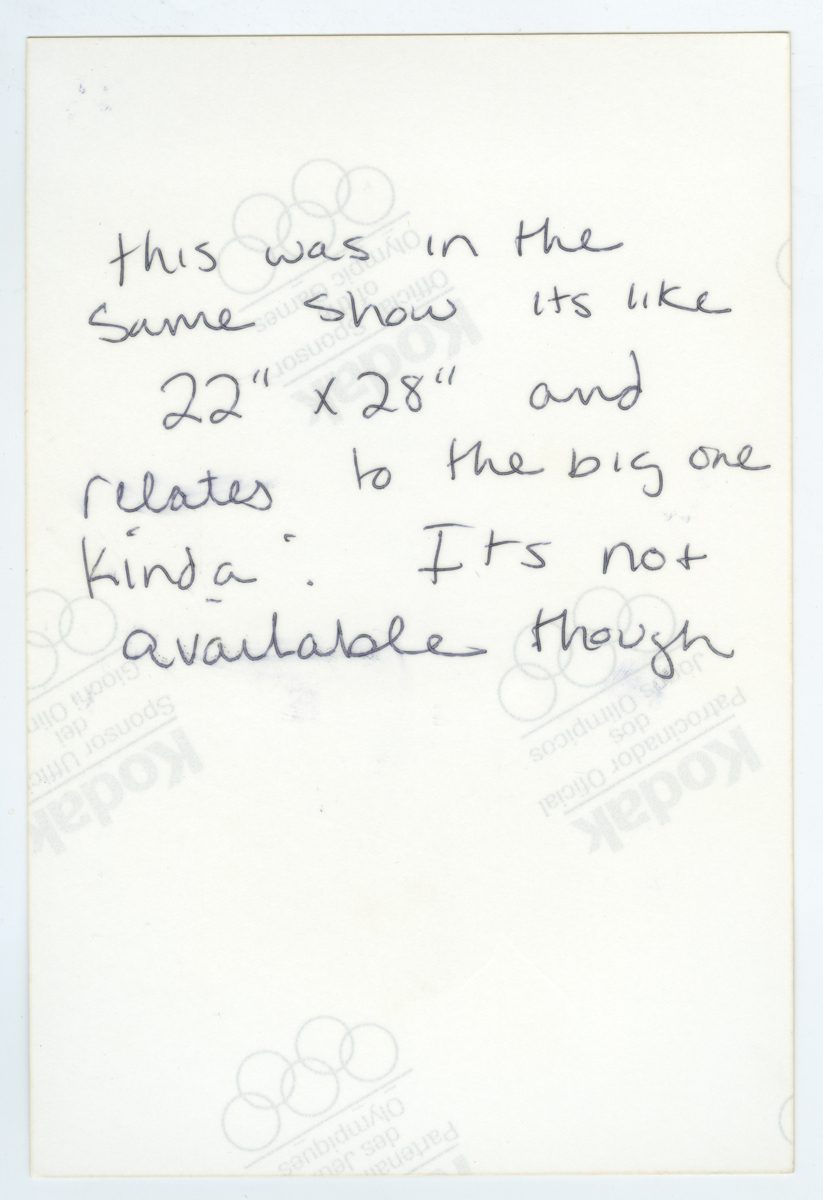 this was in the
same show its like
22" x 28" and
relates to the big one
kinda. Its not
available though
Official Sponsor
of the
Olympic Games
Kodak
Sponsor Uffici
dei
Giochi Olim
Kodak
Patrocinador Oficial
dos
Jogos Olímpicos
Kodak
Partenai
des Jeux
Olympiques